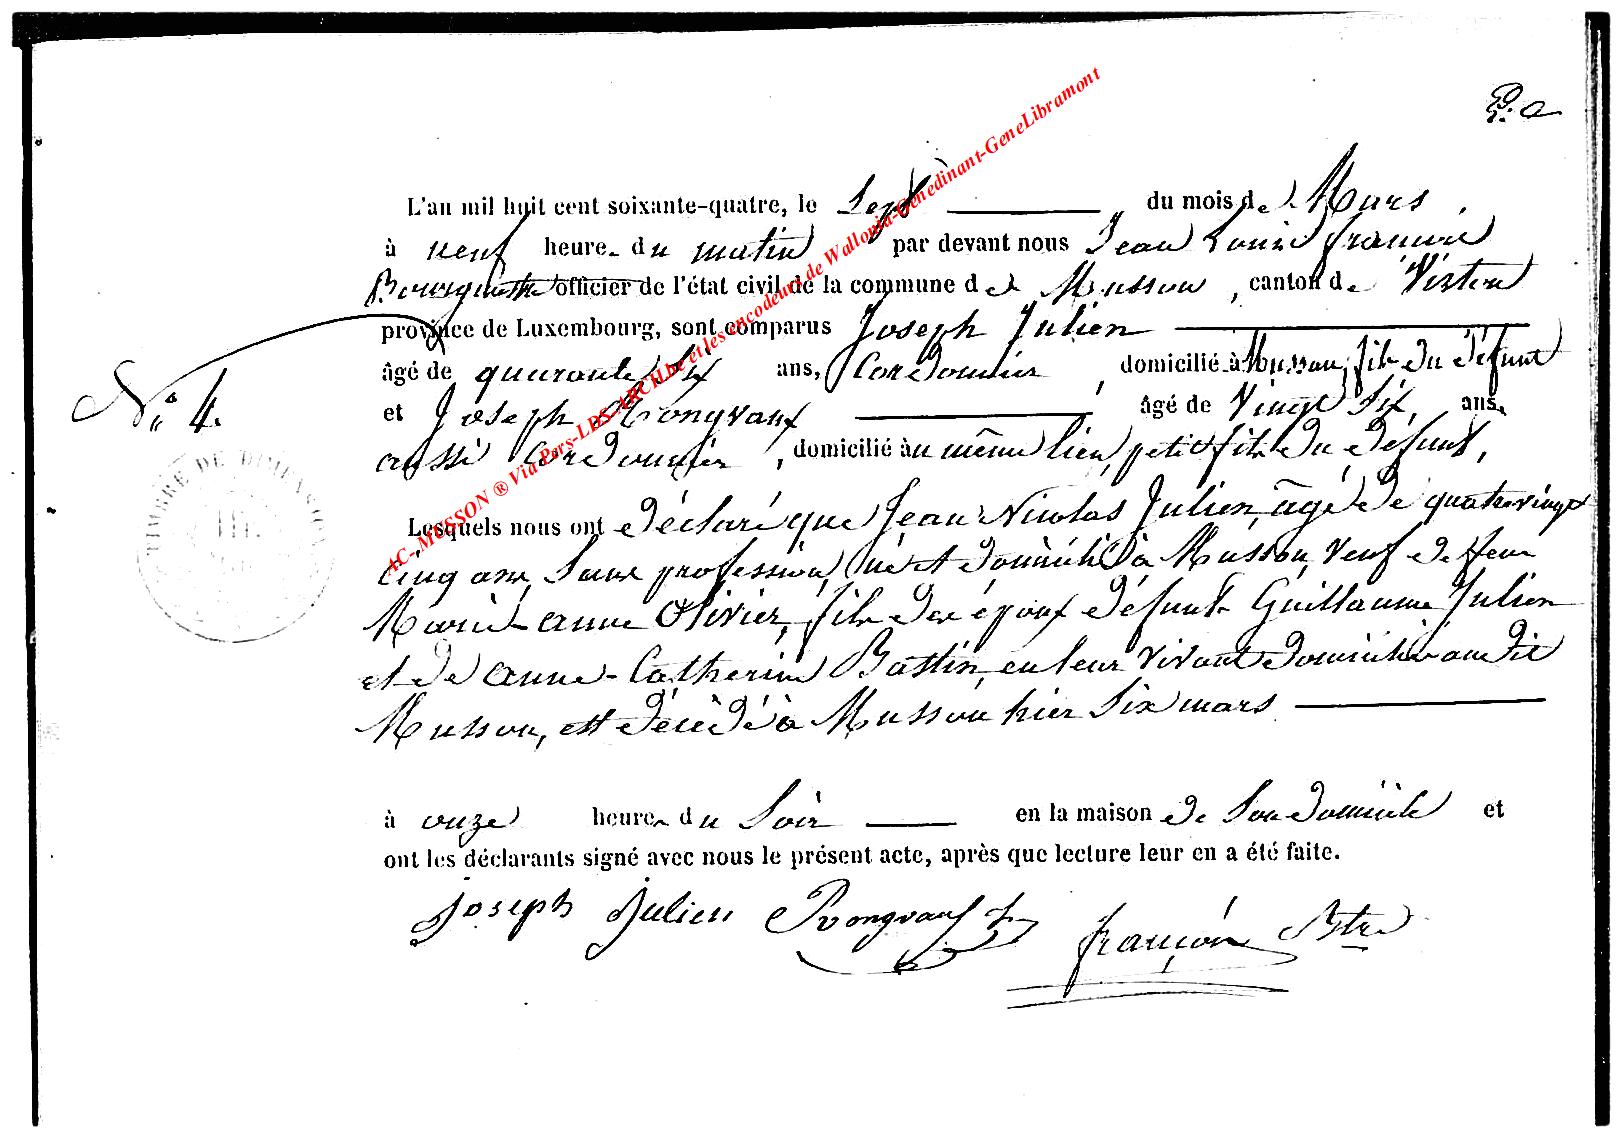 L'an mil huit cent soixante-quatre, le Sept du mois de Mars
à neuf heures du matin par devant nous Jean Louis françois
Bourguelmestre officier de l'état civil de la commune de Musson, canton de Virton
province de Luxembourg, sont comparus Joseph Julien
âgé de quarante six ans, Cordonnier, domicilié à Musson, fils du défunt
N° 4.
et Joseph Rongvaux âgé de vingt six, ans,
aussi Cordonnier, domicilié au même lieu, petit fils du défunt,
TIMBRE DE DIMENSION
Lesquels nous ont déclaré que Jean Nicolas Julien, âgé de quatre vingt
cinq ans, sans profession, né et domicilié à Musson, veuf de feue
Marie-anne Olivier, fils des époux défunts Guillaume Julien
et de anne-Catherine Bastin, en leur vivant domiciliés audit
Musson, est décédé à Musson hier six mars
à onze heures du Soir en la maison de Son domicile et
ont les déclarants signé avec nous le présent acte, après que lecture leur en a été faite.
Joseph Julien Rongvaux J françois Btre
AC-MUSSON ® Via Pers-LDS-ARCH.be et les encodeurs de Wallonia-Genedinant-GeneLibramont